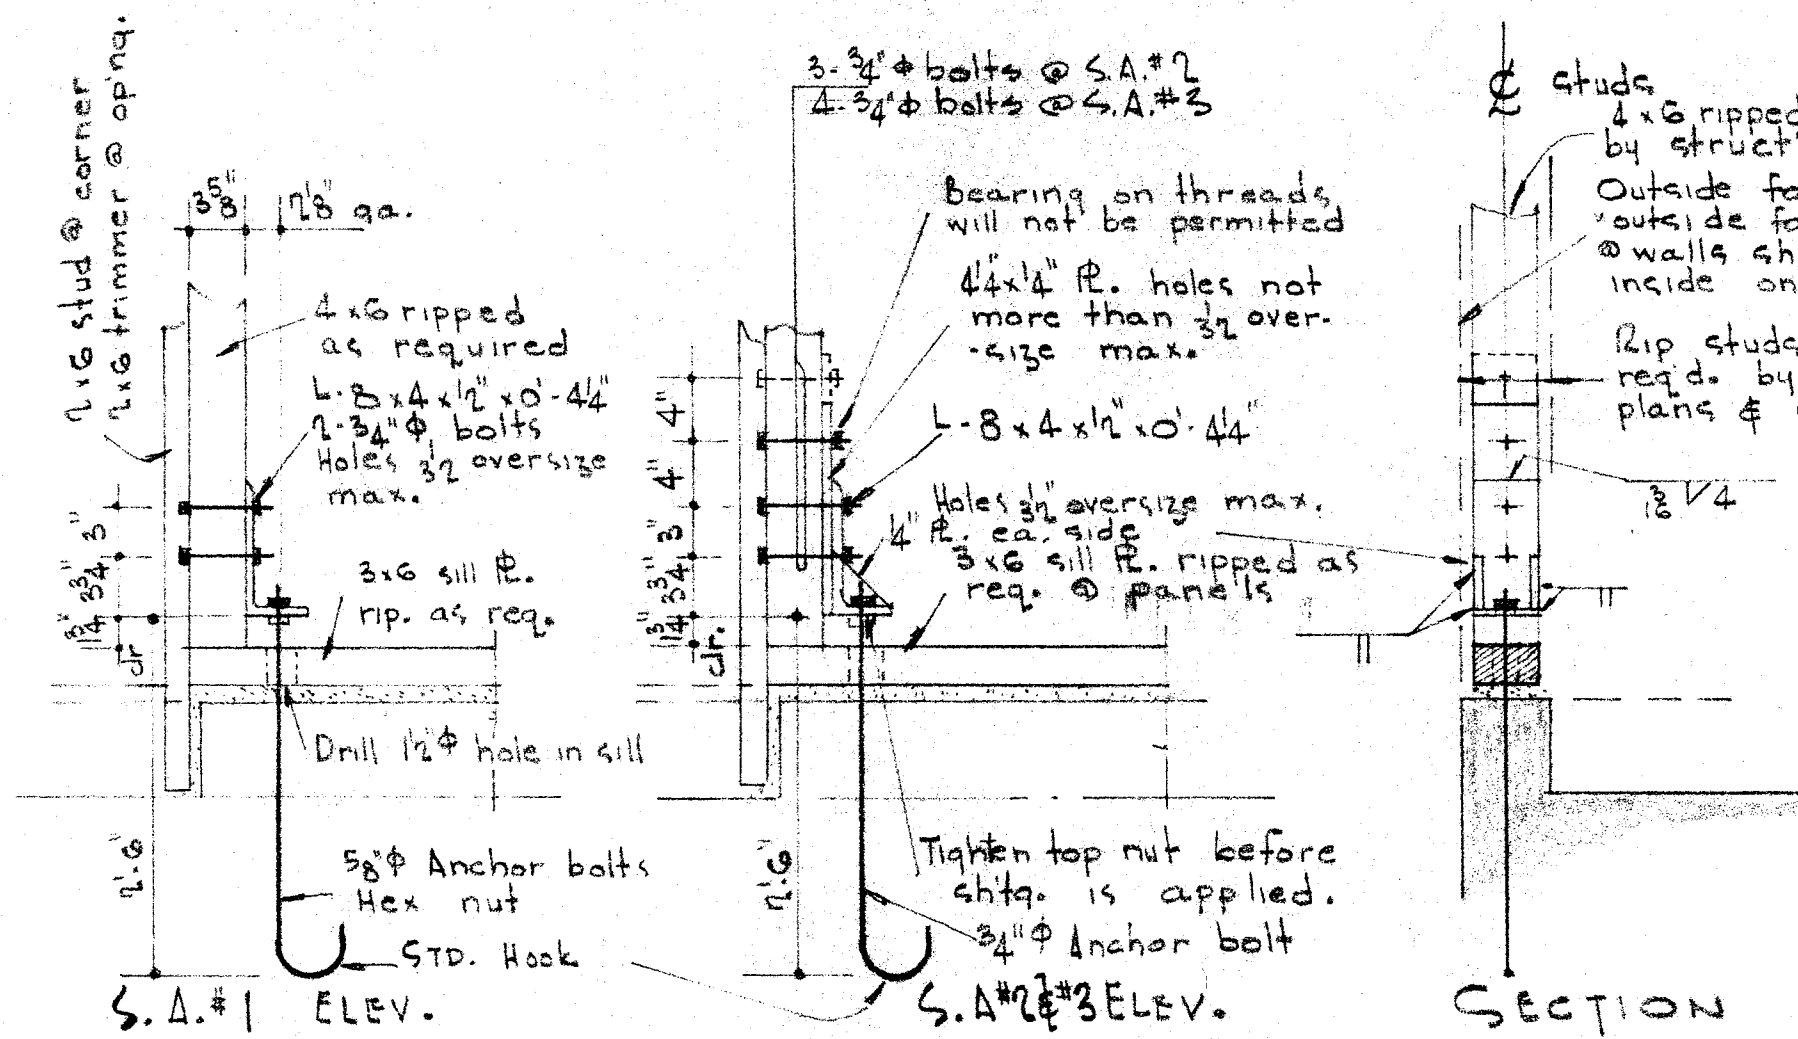 2x6 stud @ corner
2x6 trimmer @ op'ng.
3 5/8"
2 1/8" ga.
4x6 ripped
as required
L-8x4x1/2"x0'-4 1/4"
2-3/4"Φ bolts
Holes 1/32 oversize
max.
3"
3 3/4"
1 3/4"
clr
3x6 sill PL.
rip. as req.
Drill 1 1/2"Φ hole in sill
2'-6"
5/8"Φ Anchor bolts
Hex nut
STD. Hook
S.A.#1 ELEV.
3-3/4"Φ bolts @ S.A.#2
4-3/4"Φ bolts @ S.A.#3
Bearing on threads
will not be permitted
4 1/4"x1/4" PL. holes not
more than 1/32 over-
-size max.
L-8x4x1/2"x0'-4 1/4"
Holes 1/32" oversize max.
1/4" PL. ea. side
3x6 sill PL. ripped as
req. @ panels
4"
4"
3"
3 3/4"
1 3/4"
clr.
2'-6"
Tighten top nut before
sh'tg. is applied.
3/4"Φ Anchor bolt
S.A#2&#3 ELEV.
℄ studs
4x6 ripped
by struct'
Outside fa
outside fa
@ walls sh
inside on
Rip studs
req'd. by
plans &
3/16 V 4
SECTION